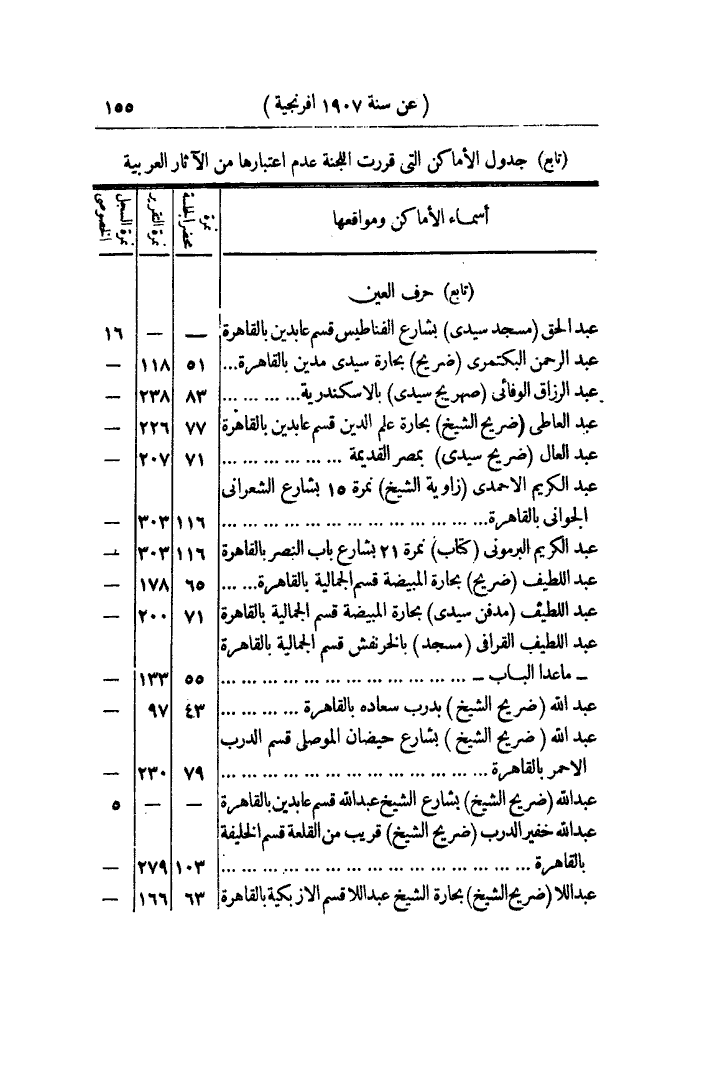 (عن سنة ١٩٠٧ افرنجية) ١٥٥
(تابع) جدول الأماكن التى قررت اللجنة عدم اعتبارها من الآثار العربية
أسماء الأماكن ومواقعها | نمرة محضر الجلسة | نمرة التقرير | نمرة السجل الخصوصى
(تابع) حرف العين
عبد الحق (مسجد سيدى) بشارع الفناطيس قسم عابدين بالقاهرة — — ١٦
عبد الرحمن البكتمرى (ضريح) بحارة سيدى مدين بالقاهرة... ٥١ ١١٨ —
عبد الرزاق الوفائى (صهريج سيدى) بالاسكندرية... ... ... ... ٨٣ ٢٣٨ —
عبد العاطى (ضريح الشيخ) بحارة علم الدين قسم عابدين بالقاهرة ٧٧ ٢٢٦ —
عبد العال (ضريح سيدى) بمصر القديمة ... ... ... ... ... ... ٧١ ٢٠٧ —
عبد الكريم الاحمدى (زاوية الشيخ) نمرة ١٥ بشارع الشعرانى
الجوانى بالقاهرة... ... ... ... ... ... ... ... ... ... ... ... ... ١١٦ ٣٠٣ —
عبد الكريم البرمونى (كتاب) نمرة ٢١ بشارع باب النصر بالقاهرة ١١٦ ٣٠٣ —
عبد اللطيف (ضريح) بحارة المبيضة قسم الجمالية بالقاهرة... ... ٦٥ ١٧٨ —
عبد اللطيف (مدفن سيدى) بحارة المبيضة قسم الجمالية بالقاهرة ٧١ ٢٠٠ —
عبد اللطيف القرافى (مسجد) بالخرنفش قسم الجمالية بالقاهرة
– ماعدا الباب – ... ... ... ... ... ... ... ... ... ... ... ... ٥٥ ١٣٣ —
عبد الله (ضريح الشيخ) بدرب سعاده بالقاهرة ... ... ... ... ٤٣ ٩٧ —
عبد الله (ضريح الشيخ) بشارع حيضان الموصلى قسم الدرب
الاحمر بالقاهرة ... ... ... ... ... ... ... ... ... ... ... ... ... ٧٩ ٢٣٠ —
عبدالله (ضريح الشيخ) بشارع الشيخ عبدالله قسم عابدين بالقاهرة — — ٥
عبدالله خفير الدرب (ضريح الشيخ) قريب من القلعة قسم الخليفة
بالقاهرة ... ... ... ... ... ... ... ... ... ... ... ... ... ... ... ١٠٣ ٢٧٩ —
عبداللا (ضريح الشيخ) بحارة الشيخ عبداللا قسم الازبكية بالقاهرة ٦٣ ١٦٦ —